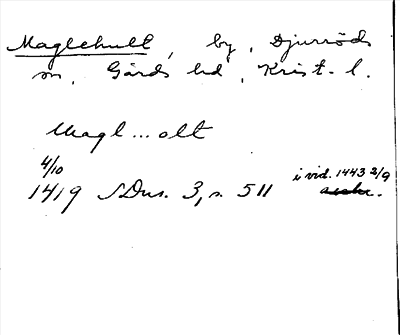 Maglehult, by, Djurröds
sn, Gärds hd, Krist. l.
Magl...olt
4/10
i vid. 1443 2/9
1419 SDns. 3, s. 511